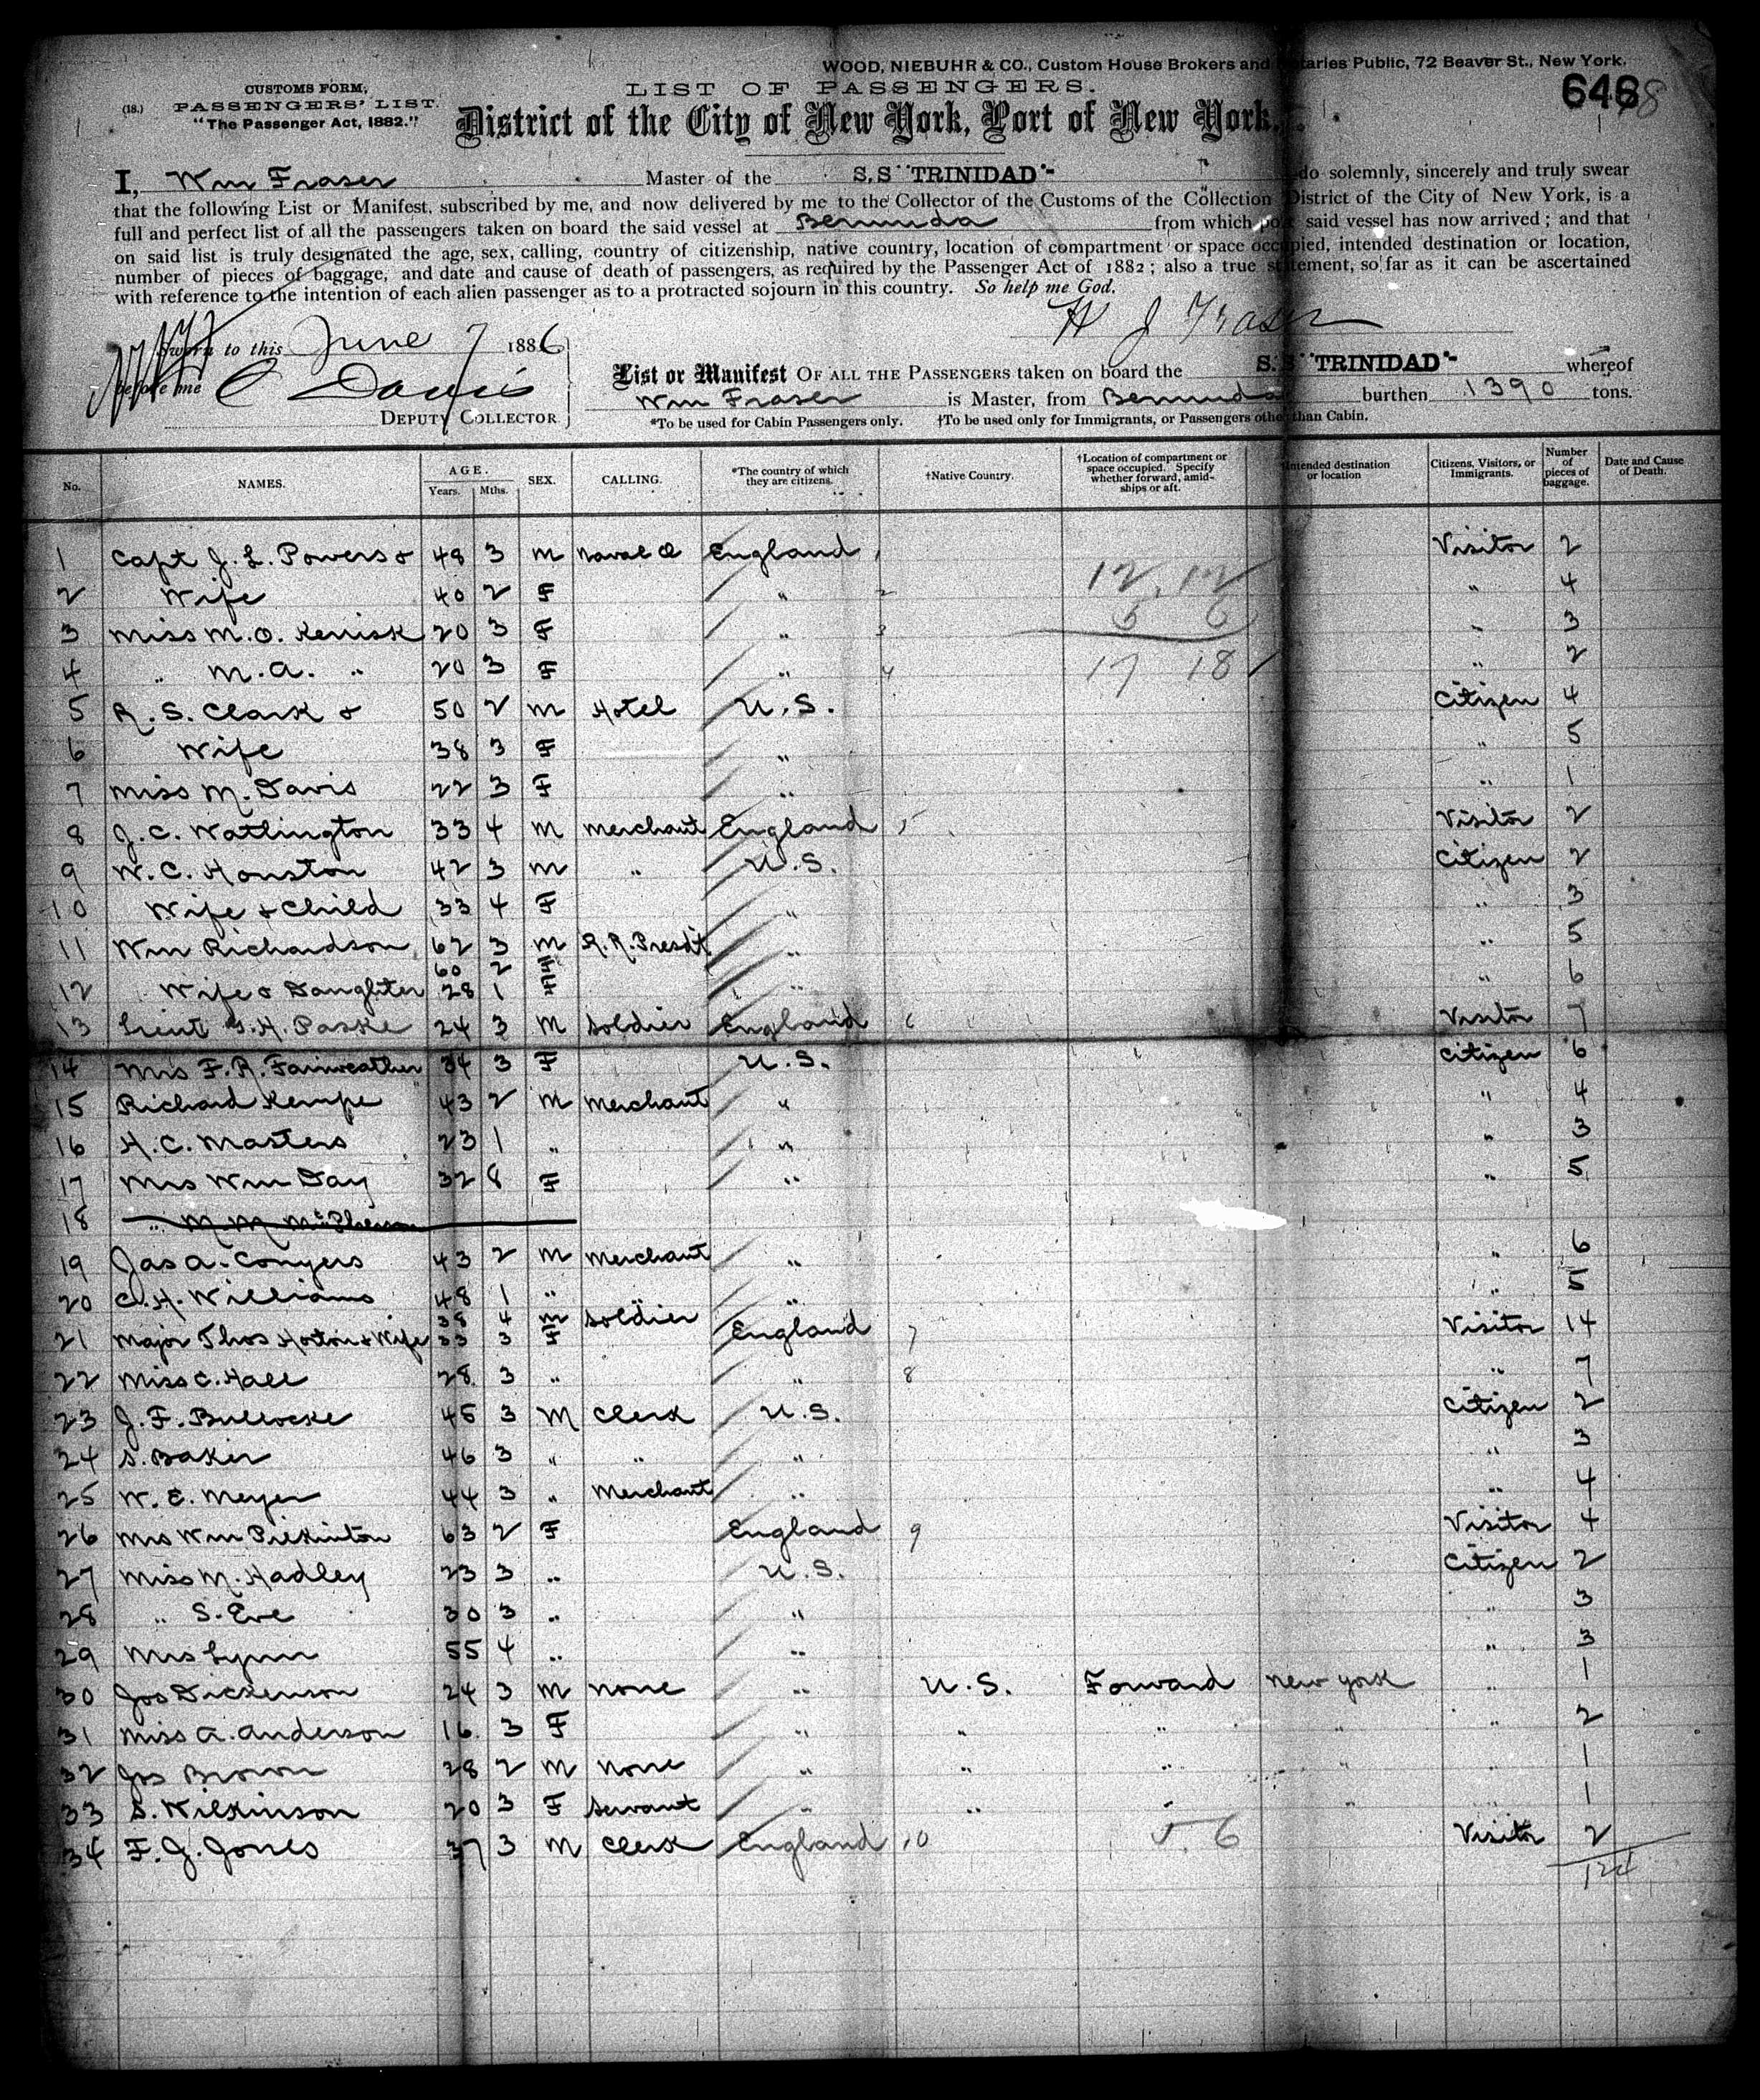 WOOD, NIEBUHR & CO., Custom House Brokers and Notaries Public, 72 Beaver St., New York.
CUSTOMS FORM,
(18.) PASSENGERS' LIST.
"The Passenger Act, 1882."
LIST OF PASSENGERS.
646
District of the City of New York, Port of New York.
I, Wm Fraser Master of the S.S "TRINIDAD" do solemnly, sincerely and truly swear
that the following List or Manifest, subscribed by me, and now delivered by me to the Collector of the Customs of the Collection District of the City of New York, is a
full and perfect list of all the passengers taken on board the said vessel at Bermuda from which port said vessel has now arrived; and that
on said list is truly designated the age, sex, calling, country of citizenship, native country, location of compartment or space occupied, intended destination or location,
number of pieces of baggage, and date and cause of death of passengers, as required by the Passenger Act of 1882; also a true statement, so far as it can be ascertained
with reference to the intention of each alien passenger as to a protracted sojourn in this country. So help me God.
W J Fraser
Sworn to this June 7 1886
before me C Davis
DEPUTY COLLECTOR
List or Manifest OF ALL THE PASSENGERS taken on board the S.S "TRINIDAD" whereof
Wm Fraser is Master, from Bermuda burthen 1390 tons.
*To be used for Cabin Passengers only. †To be used only for Immigrants, or Passengers other than Cabin.
No. NAMES. AGE. Years. Mths. SEX. CALLING. *The country of which they are citizens. †Native Country. †Location of compartment or space occupied. Specify whether forward, amidships or aft. Intended destination or location Citizens, Visitors, or Immigrants. Number of pieces of baggage. Date and Cause of Death.
1 Capt J. L. Powers & 48 3 M Naval O England 1 Visitor 2
2 Wife 40 2 F " 2 12 12 " 4
3 Miss M. O. Kerrisk 20 3 F " 3 5 6 " 3
4 " M. A. " 20 3 F " 4 17 18 " 2
5 R. S. Clark & 50 2 M Hotel U.S. Citizen 4
6 Wife 38 3 F " " 5
7 Miss M. Davis 22 3 F " " 1
8 J. C. Watlington 33 4 M Merchant England 5 Visitor 2
9 W. C. Houston 42 3 M " U.S. Citizen 2
10 Wife & Child 33 4 F " " 3
11 Wm Richardson 62 3 M R.R. Presdt " " 5
60 2 F
12 Wife & Daughter 28 1 F " " 6
13 Lieut G. H. Paske 24 3 M Soldier England 6 Visitor 7
14 Mrs F. R. Fairweather 34 3 F U.S. Citizen 6
15 Richard Kempe 43 2 M Merchant " " 4
16 H. C. Masters 23 1 " " " 3
17 Mrs Wm Day 32 8 F " " 5
18 " M. M.
19 Jas A. Conyers 43 2 M Merchant " " 6
20 C. H. Williams 48 1 " " " " 5
38 4 M Soldier
21 Major Thos Horton & Wife 33 3 F England 7 Visitor 14
22 Miss C. Hall 28 3 " " 8 " 7
23 J. F. Bullocke 45 3 M Clerk U.S. Citizen 2
24 S. Baker 46 3 " " " " 3
25 W. E. Meyer 44 3 " Merchant " " 4
26 Mrs Wm Pilkinton 63 2 F England 9 Visitor 4
27 Miss M. Hadley 23 3 " U.S. Citizen 2
28 " S. Eve 30 3 " " " 3
29 Mrs Lynn 55 4 " " " 3
30 Jos Dickenson 24 3 M None " U.S. Forward New York " 1
31 Miss A. Anderson 16 3 F " " " " " 2
32 Jos Brown 28 2 M None " " " " " 1
33 S. Wilkinson 20 3 F Servant " " " " " 1
34 F. J. Jones 37 3 M Clerk England 10 5 6 Visitor 2
124